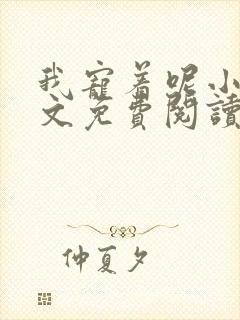 我寵着呢小
文免費閱讀
仲夏夕